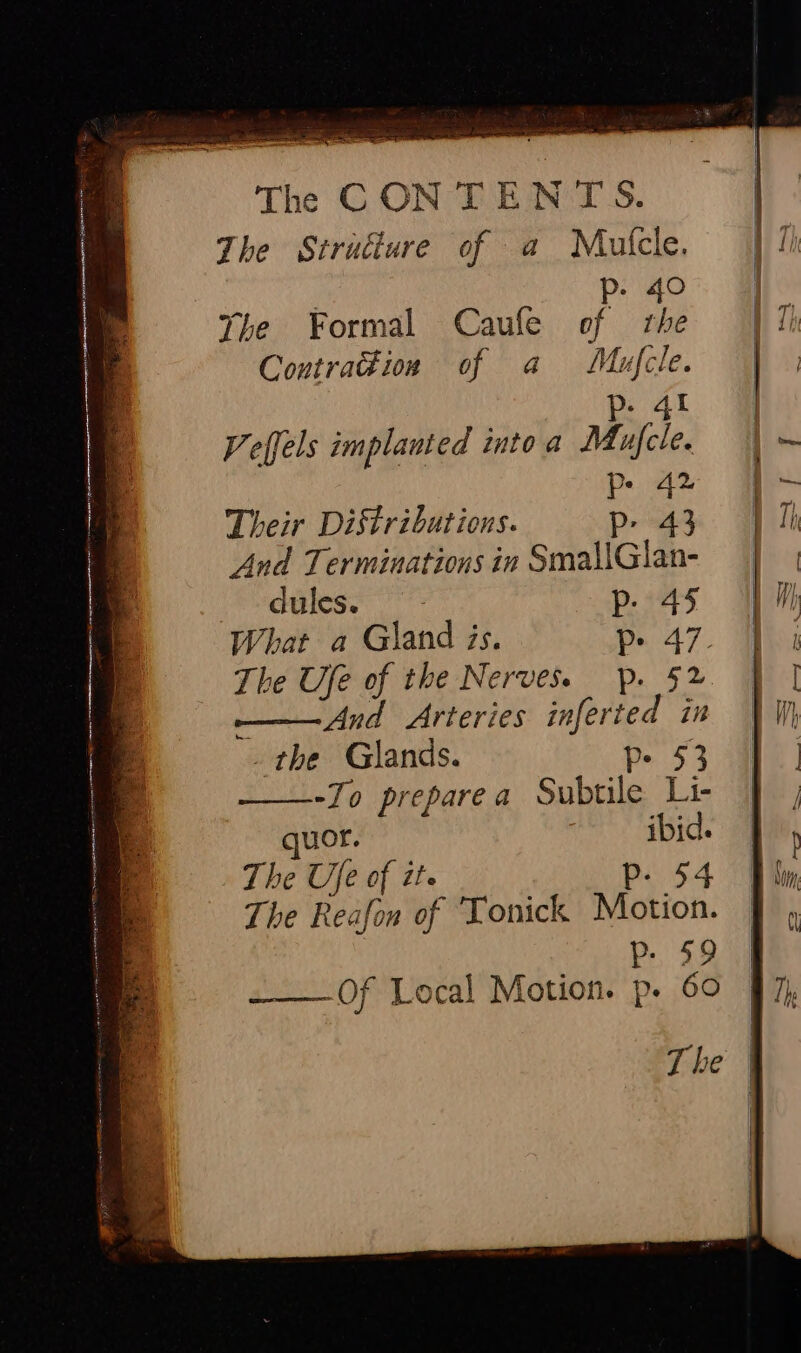 The CONTENTS.
The Structure of a Muſcle.
p. 40
The Formal Cauſe of the
Contraction of a Muſcle.
p. 41
Veſſels implanted into a Muſcle.
p. 42
Their Diſtributions. p. 43
And Terminations in Small Glan-
dules. p. 45
What a Gland is. p. 47.
The Uſe of the Nerves. p. 52
——And Arteries inſerted in
the Glands. p. 53
——-To prepare a Subtile Li-
quor. ibid.
The Uſe of it. p. 54
The Reaſon of Tonick Motion.
p. 59
——Of Local Motion. p. 60
The